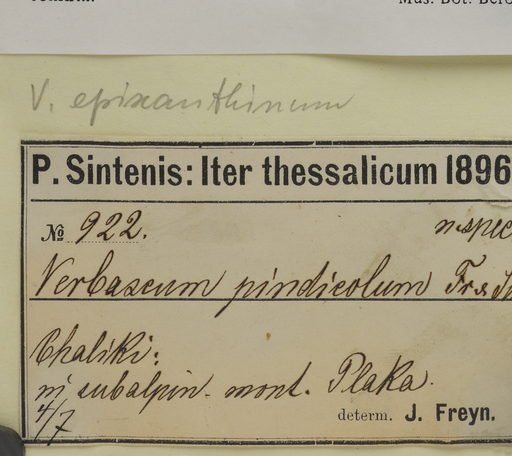 Mus. Bot. Bero
V. epixanthinum
P. Sintenis: Iter thessalicum 1896
№ 922. n. spec
Verbascum pindicolum Fr &
Chaliki:
in subalpin. mont. Plaka.
4/7 determ. J. Freyn.